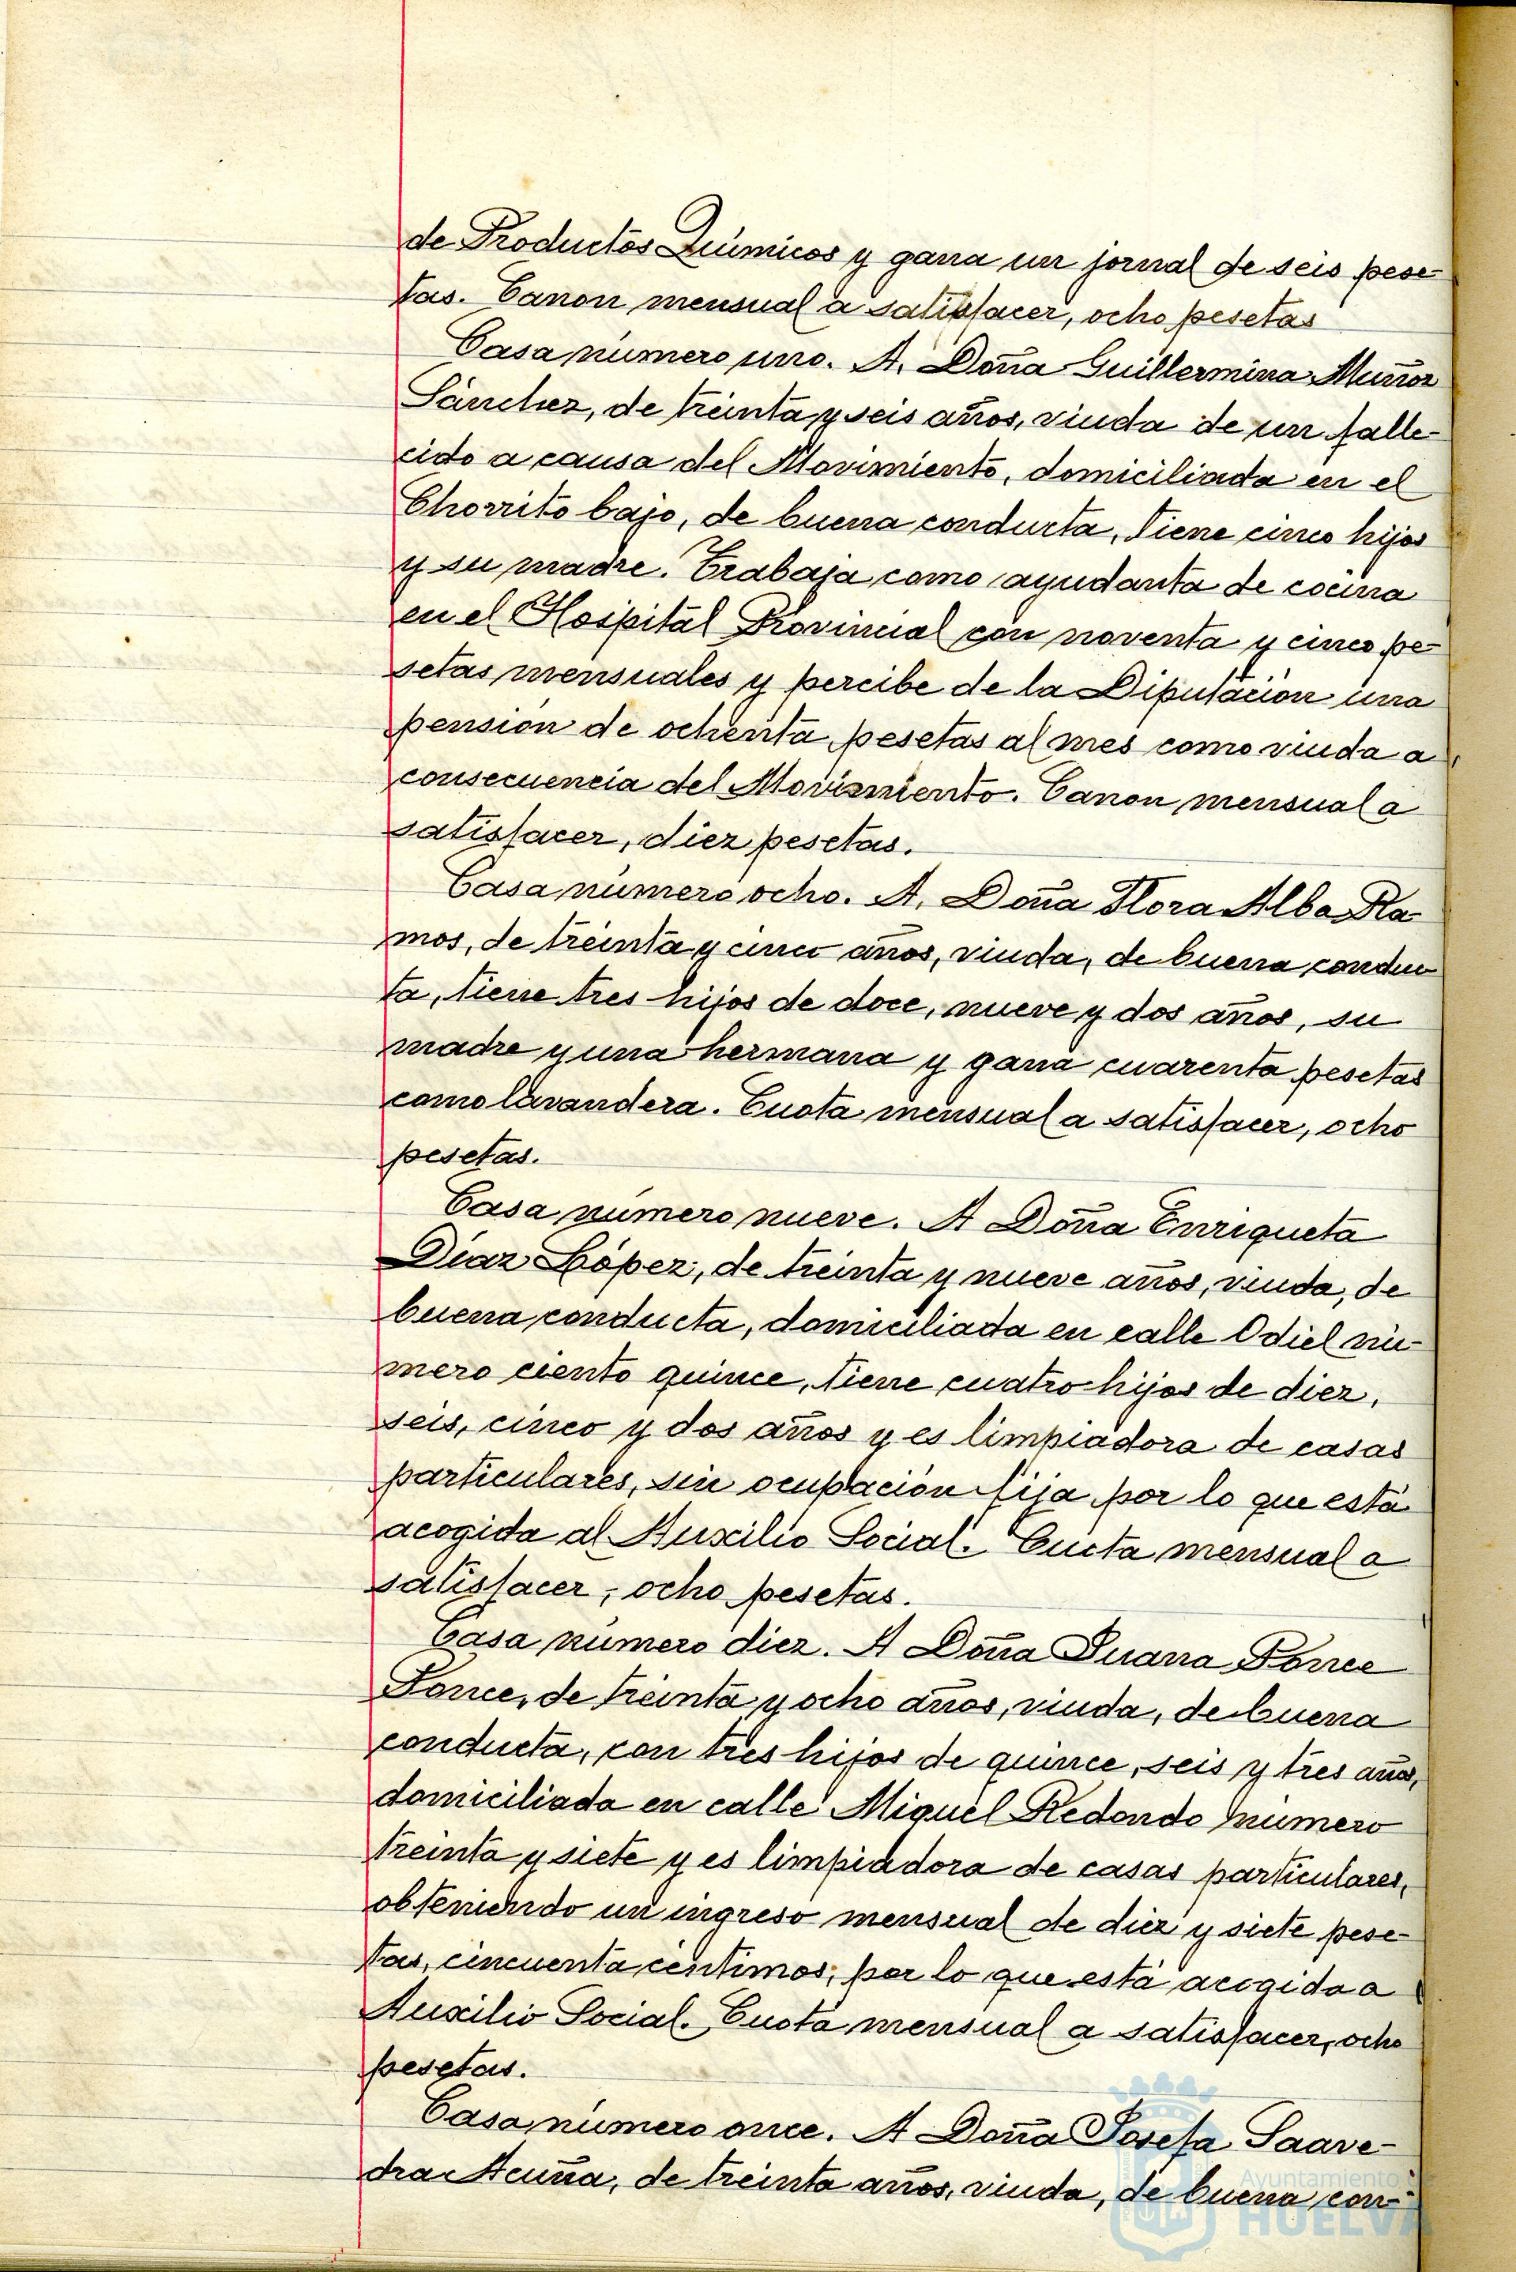 de Productos Químicos y gana un jornal de seis pese-
tas. Canon mensual a satisfacer, ocho pesetas
Casa número uno. A. Doña Guillermina Muñoz
Sánchez, de treinta y seis años, viuda de un falle-
cido a causa del Movimiento, domiciliada en el
Chorrito bajo, de buena conducta, tiene cinco hijos
y su madre. Trabaja como ayudanta de cocina
en el Hospital Provincial con noventa y cinco pe-
setas mensuales y percibe de la Diputación una
pensión de ochenta pesetas al mes como viuda a
consecuencia del Movimiento. Canon mensual a
satisfacer, diez pesetas.
Casa número ocho. A. Doña Flora Alba Ra-
mos, de treinta y cinco años, viuda, de buena conduc-
ta, tiene tres hijos de doce, nueve y dos años, su
madre y una hermana y gana cuarenta pesetas
como lavandera. Cuota mensual a satisfacer, ocho
pesetas.
Casa número nueve. A Doña Enriqueta
Díaz López, de treinta y nueve años, viuda, de
buena conducta, domiciliada en calle Odiel nú-
mero ciento quince, tiene cuatro hijos de diez,
seis, cinco y dos años y es limpiadora de casas
particulares, sin ocupación fija por lo que está
acogida al Auxilio Social. Cuota mensual a
satisfacer, ocho pesetas.
Casa número diez. A Doña Juana Ponce
Ponce, de treinta y ocho años, viuda, de buena
conducta, con tres hijos de quince, seis y tres años,
domiciliada en calle Miguel Redondo número
treinta y siete y es limpiadora de casas particulares,
obteniendo un ingreso mensual de diez y siete pese-
tas, cincuenta céntimos, por lo que está acogida a
Auxilio Social. Cuota mensual a satisfacer, ocho
pesetas.
Casa número once. A Doña Josefa Saave-
dra Acuña, de treinta años, viuda, de buena con-
Ayuntamiento de
HUELVA